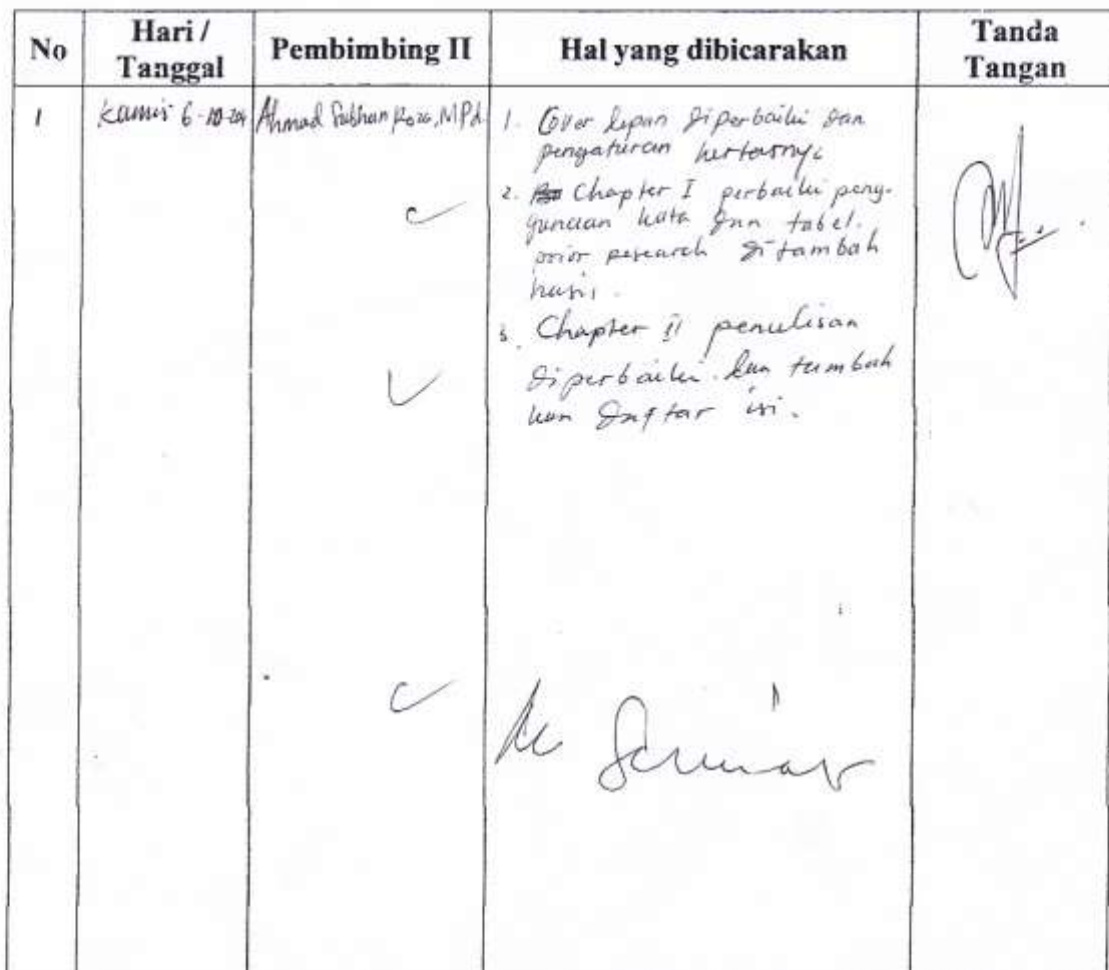 No
Hari /
Tanggal
Pembimbing II
Hal yang dibicarakan
Tanda
Tangan
1
Kamis 6-10-
Ahmad Subhan Roza, MPd
1. Cover depan diperbaiki dan
pengaturan kertasnya
2. Chapter I perbaiki peng-
gunaan kata dan tabel.
prior research ditambah
hasil.
3. Chapter II penulisan
diperbaiki dan tambah
kan daftar isi.
Acc Seminar